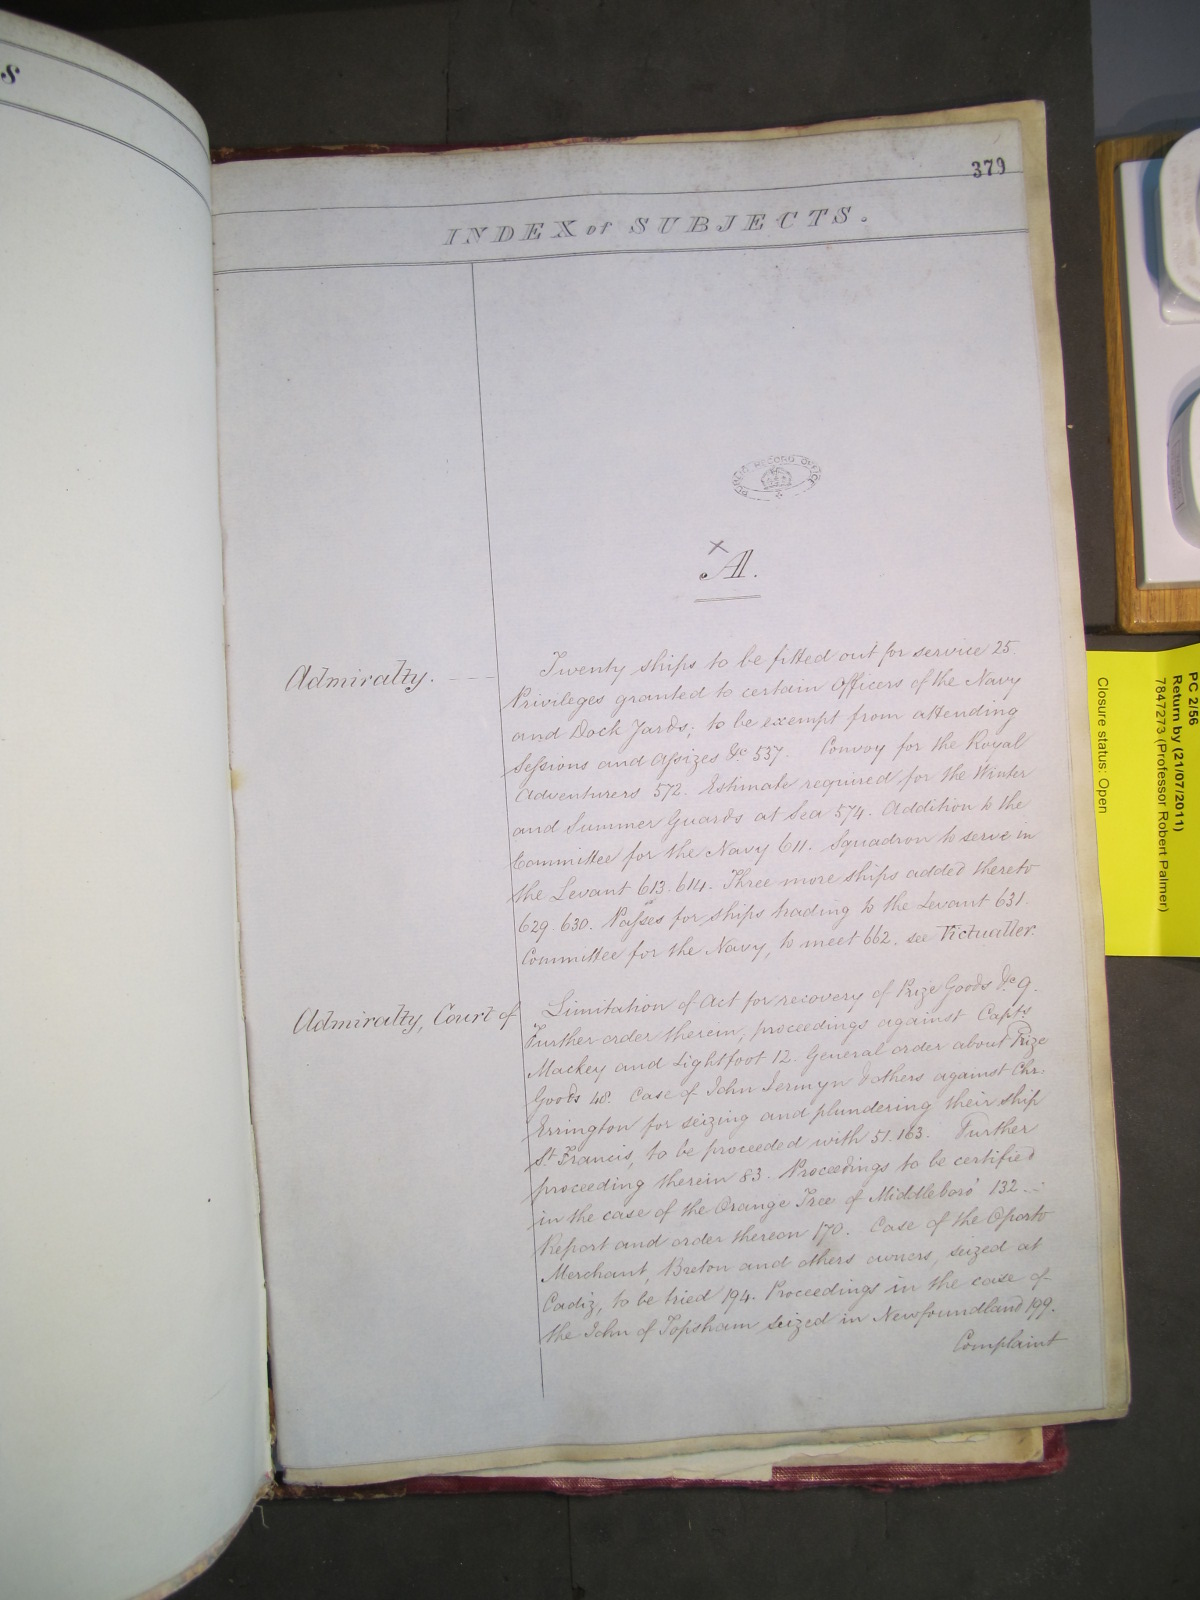 s
379
INDEX of SUBJECTS.
PUBLIC RECORD OFFICE
A.
Admiralty.
Twenty ships to be fitted out for service 25.
Privileges granted to certain Officers of the Navy
and Dock Yards; to be exempt from attending
Sessions and Assizes &c 537. Convoy for the Royal
Adventurers 572. Estimate required for the Winter
and Summer Guards at Sea 574. Addition to the
Committee for the Navy 611. Squadron to serve in
the Levant 613. 614. Three more ships added thereto
629. 630. Passes for ships trading to the Levant 631.
Committee for the Navy, to meet 662. see Victualler.
Admiralty, Court of
Limitation of Act for recovery of Prize Goods &c 9.
Further order therein, proceedings against Capts
Mackey and Lightfoot 12. General order about Prize
Goods 48. Case of John Jermyn & others against Chr.
Errington for seizing and plundering their ship
St. Francis, to be proceeded with 51. 163. Further
proceeding therein 83. Proceedings to be certified
in the case of the Orange Tree of Middleboro' 132.
Report and order thereon 170. Case of the Oporto
Merchant, Breton and others owners, seized at
Cadiz, to be tried 194. Proceedings in the case of
the John of Topsham seized in Newfoundland 199.
Complaint
PC 2/56
Return by (21/07/2011)
7847273 (Professor Robert Palmer)
Closure status: Open